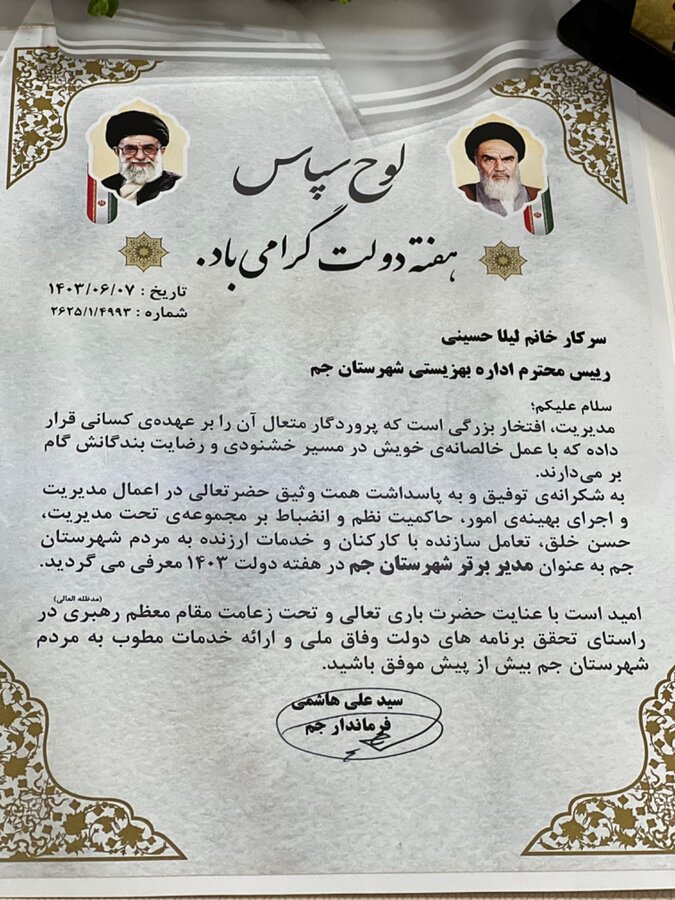 لوح سپاس
هفته دولت گرامی باد.
تاریخ : ۱۴۰۳/۰۶/۰۷
شماره : ۲۶۲۵/۱/۴۹۹۳
سرکار خانم لیلا حسینی
رییس محترم اداره بهزیستی شهرستان جم
سلام علیکم؛
مدیریت، افتخار بزرگی است که پروردگار متعال آن را بر عهده‌ی کسانی قرار
داده که با عمل خالصانه‌ی خویش در مسیر خشنودی و رضایت بندگانش گام
بر می‌دارند.
به شکرانه‌ی توفیق و به پاسداشت همت وثیق حضرتعالی در اعمال مدیریت
و اجرای بهینه‌ی امور، حاکمیت نظم و انضباط بر مجموعه‌ی تحت مدیریت،
حسن خلق، تعامل سازنده با کارکنان و خدمات ارزنده به مردم شهرستان
جم به عنوان مدیر برتر شهرستان جم در هفته دولت ۱۴۰۳ معرفی می گردید.
(مدظله العالی)
امید است با عنایت حضرت باری تعالی و تحت زعامت مقام معظم رهبری در
راستای تحقق برنامه های دولت وفاق ملی و ارائه خدمات مطوب به مردم
شهرستان جم بیش از پیش موفق باشید.
سید علی هاشمی
فرماندار جم